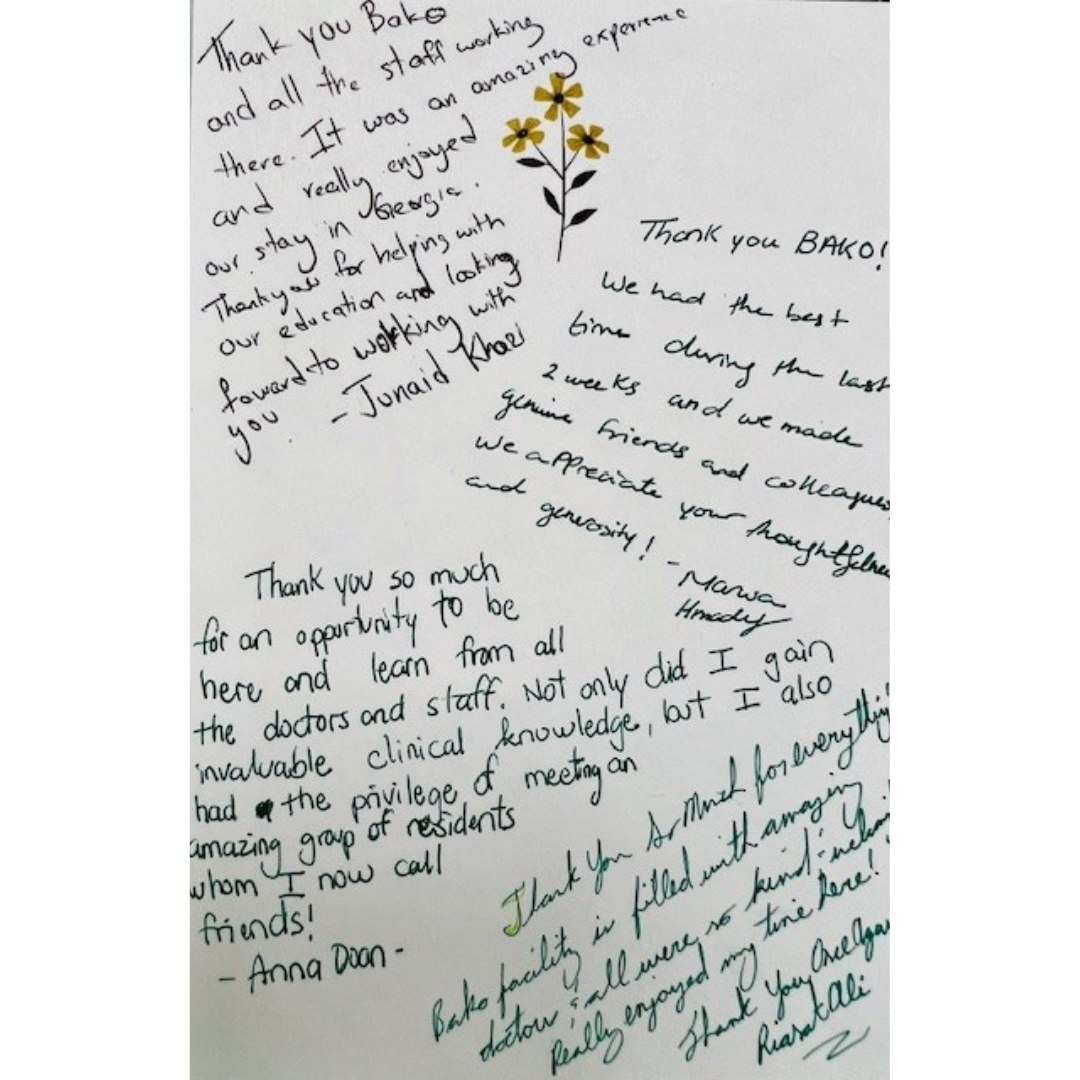 Thank you Bako
and all the staff working
there. It was an amazing experience
and really enjoyed
our stay in Georgia.
Thankyou for helping with
our education and looking
foward to working with
you. - Junaid Khazi
Thank you BAKO!
We had the best
time during the last
2 weeks and we made
genuine friends and colleagues
we appreciate your thoughtfulness
and generosity! - Marwa
Hmady
Thank you so much
for an opportunity to be
here and learn from all
the doctors and staff. Not only did I gain
invaluable clinical knowledge, but I also
had the privilege of meeting an
amazing group of residents
whom I now call
friends!
- Anna Doan -
Thank You So Much for everything
Bako facility is filled with amazing
doctors & all were so kind,
Really enjoyed my time here!
Thank You Once Again
Riasat Ali